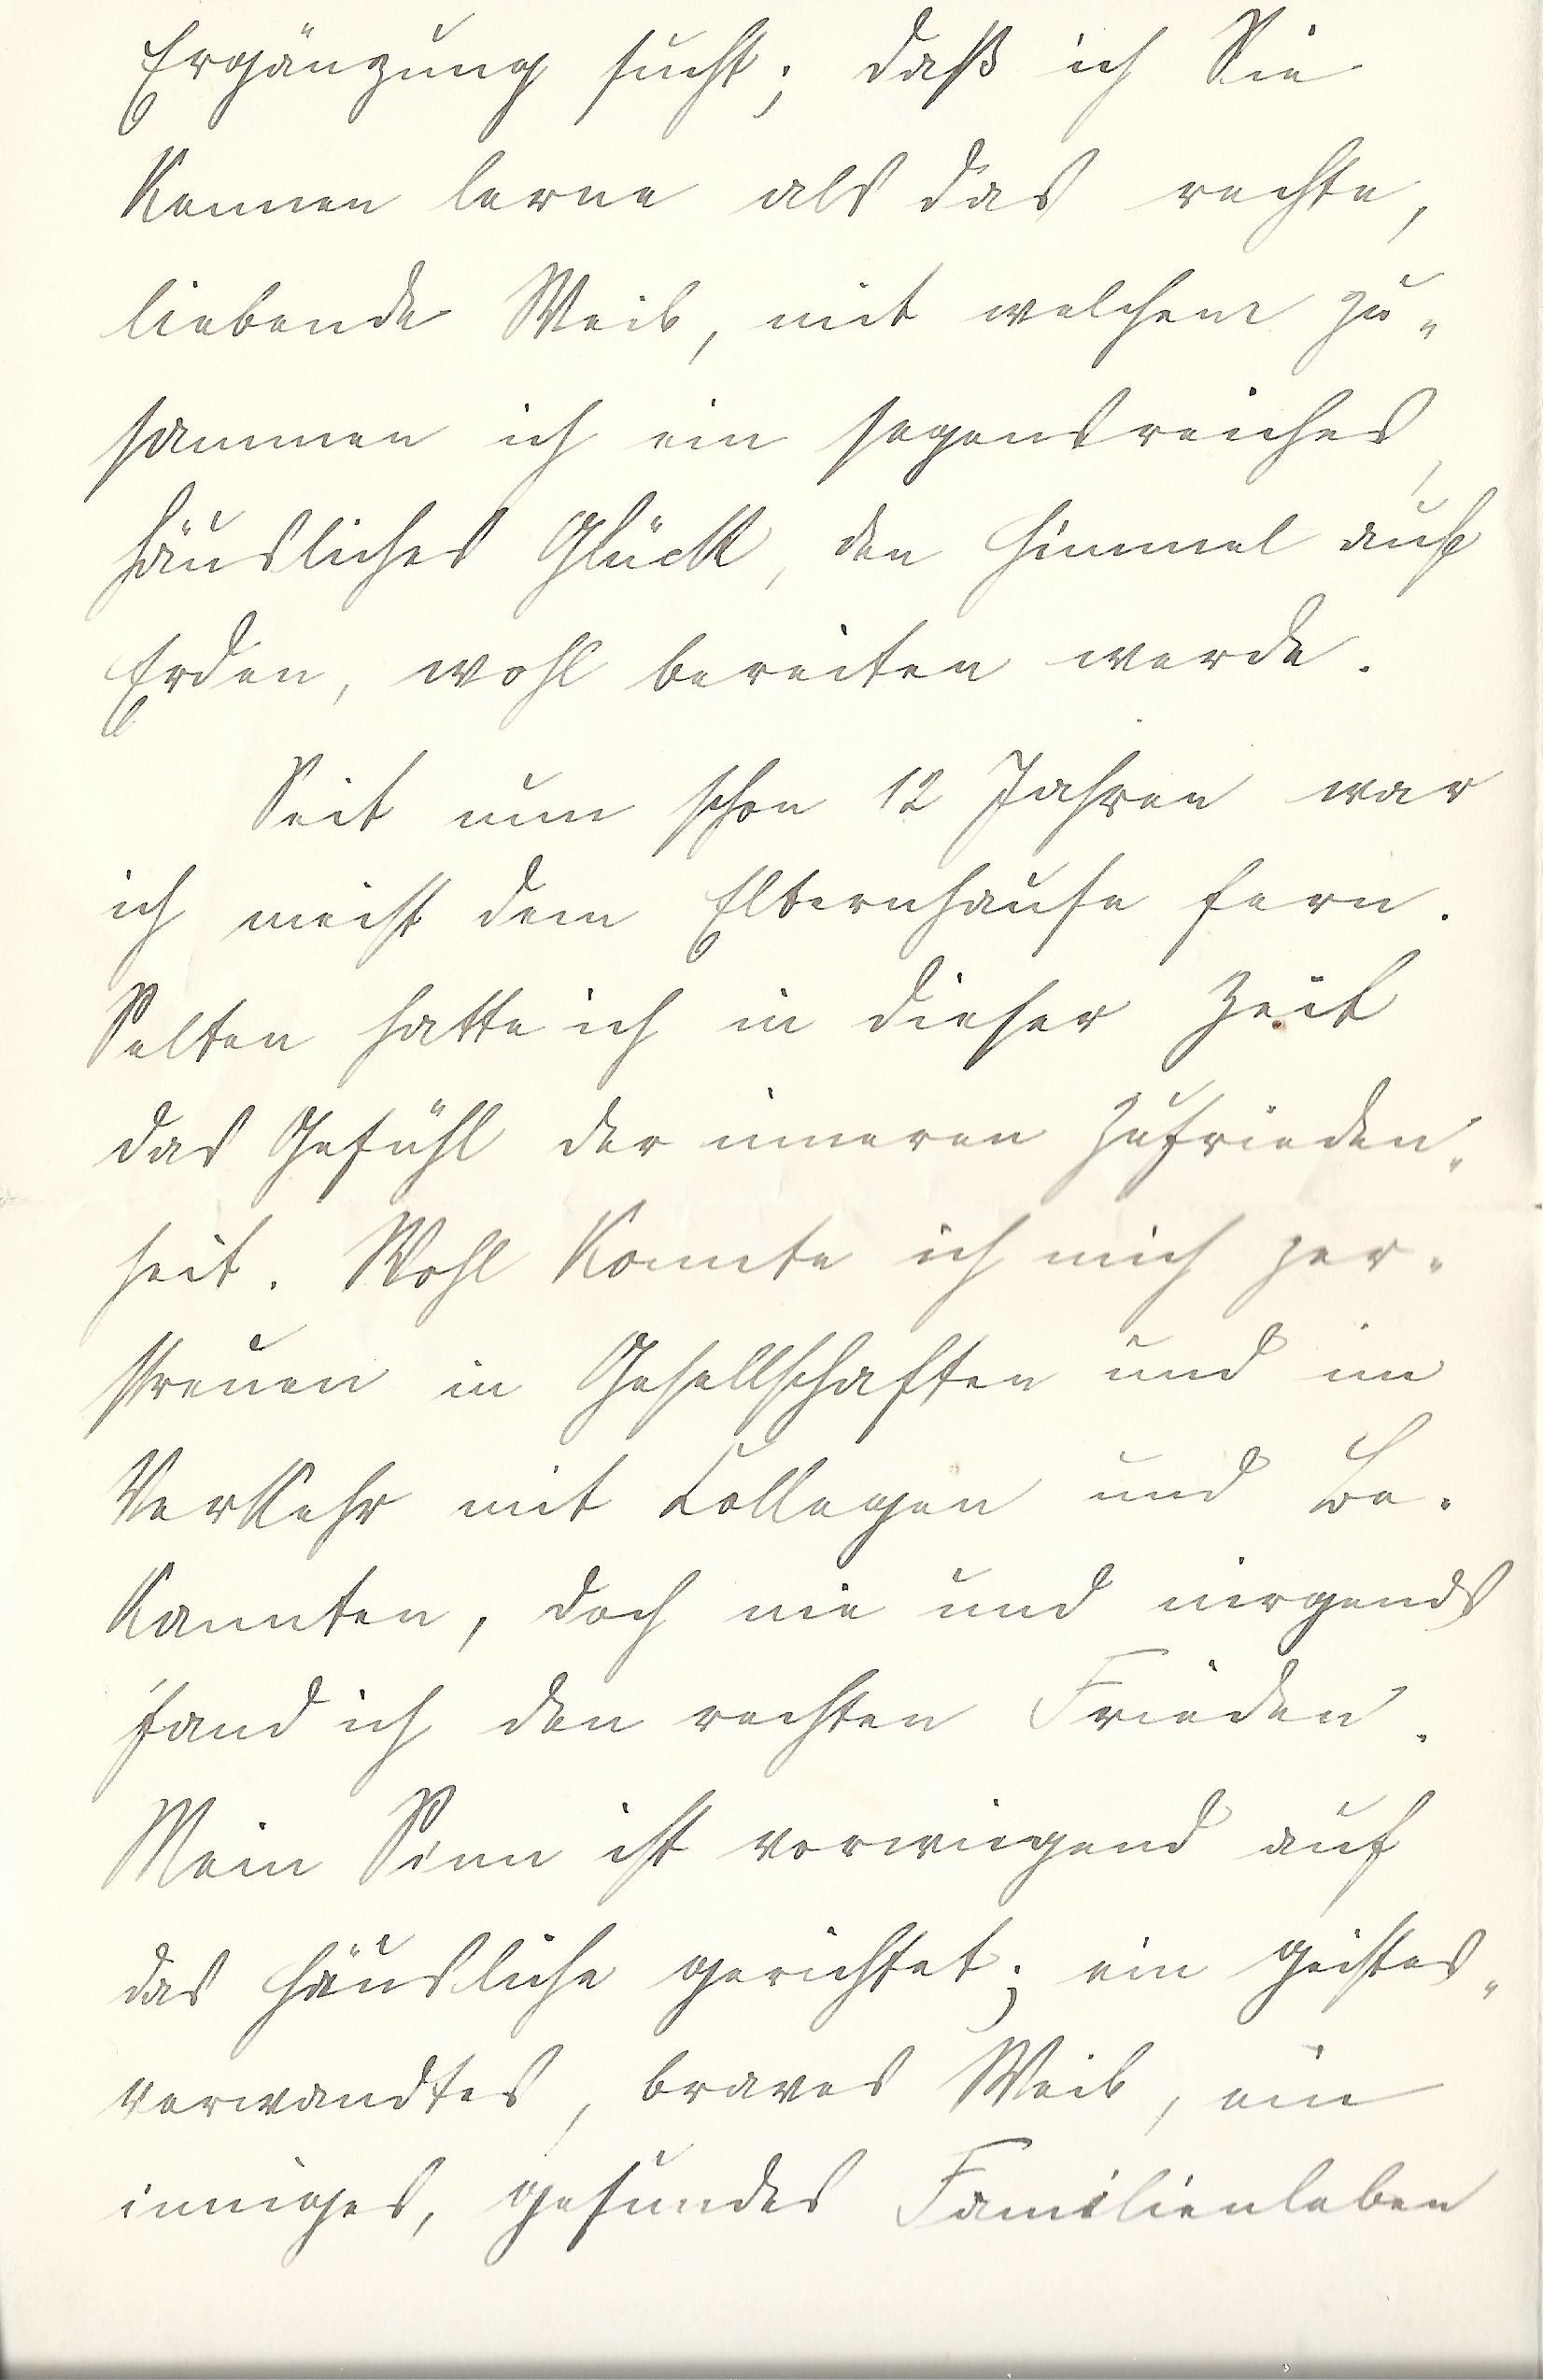 Ergänzung sucht; daß ich Sie
kennen lerne als das rechte,
liebende Weib, mit welchem zu-
sammen ich ein segensreiches,
häusliches Glück, den Himmel auf
Erden, wohl bereiten werde.
Seit nun schon 12 Jahren war
ich meist dem Elternhause fern.
Selten hatte ich in dieser Zeit
das Gefühl der inneren Zufrieden-
heit. Wohl konnte ich mich zer-
streuen in Gesellschaften und im
Verkehr mit Kollegen und Be-
kannten, doch nie und nirgends
fand ich den rechten Frieden.
Mein Sinn ist vorwiegend auf
das Häusliche gerichtet; ein geistes-
verwandtes, braves Weib, ein
inniges, gesundes Familienleben